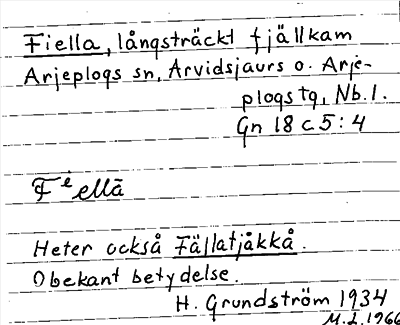 Fiella, långsträckt fjällkam
Arjeplogs sn, Arvidsjaurs o. Arje-
plogs tg, Nb. l.
Gn 18 c 5 : 4
Fⁱellā
Heter också Fällatjåkkå.
Obekant betydelse.
H. Grundström 1934
M.L. 1966